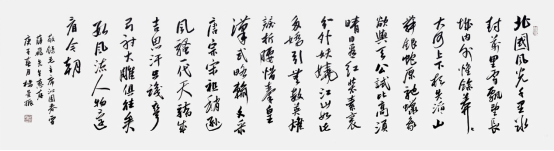 北國風光千里冰
封萬里雪飄望長
城内外惟餘莽莽
大河上下頓失滔滔山
舞銀蛇原馳蠟象
欲與天公試比高須
晴日看紅裝素裹
分外妖嬈江山如此
多嬌引無數英雄
競折腰惜秦皇
漢武略輸文采
唐宗宋祖稍遜
風騷一代天驕成
吉思汗只識彎
弓射大雕俱往矣
數風流人物還
看今朝
敬錄毛主席沁園春雪